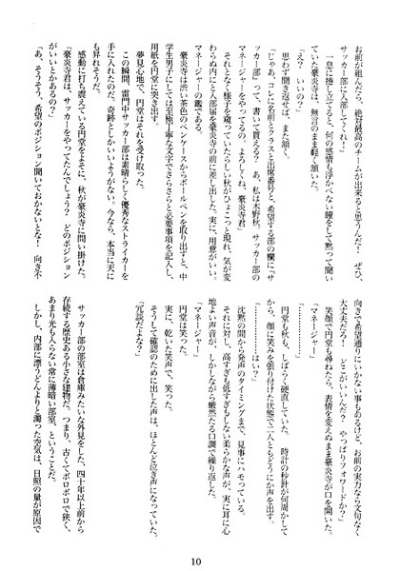 お前が組んだら、絶対最高のチームが出来ると思うんだ！　ぜひ、
サッカー部に入部してくれ！」
　一息に捲し立てると、何の感情も浮かべない瞳をして黙って聞い
ていた豪炎寺は、無言のまま軽く頷いた。
「え？　いいの？」
　思わず聞き返せば、また頷く。
「じゃあ、コレに名前とクラスと出席番号と、希望する部の欄に“サ
ッカー部”って、書いて貰える？　あ、私は木野秋。サッカー部の
マネージャーをやってるの。よろしくね、豪炎寺君」
　それとなく様子を窺っていたらしい秋がひょこっと現れ、気が変
わらぬ内にと入部届を豪炎寺の前に差し出した。実に、用意がいい。
マネージャーの鑑である。
　豪炎寺は渋い茶色のペンケースからボールペンを取り出すと、中
学生男子にしては至極丁寧な文字でさらさらと必要事項を記入し、
用紙を円堂に突き出した。
　夢見心地で、円堂はそれを受け取った。
　この瞬間、雷門中サッカー部は素晴らしく優秀なストライカーを
手に入れたのだ。奇跡としかいいようがない。今なら、本当に天に
も昇れそうだ。
　感動に打ち震えている円堂をよそに、秋が豪炎寺に問い掛けた。
「豪炎寺君は、サッカーをやってたんでしょう？　どのポジション
がいいとかあるの？」
「あ、そうそう、希望のポジション聞いておかないとな！　向き不
向きで希望通りにいかない事もあるけど、お前の実力なら文句なく
大丈夫だろ！　どこがいいんだ？　やっぱりフォワードか？」
　笑顔で円堂も尋ねたら、表情を変えぬまま豪炎寺が口を開いた。
「マネージャー」
　円堂も秋も、しばらく硬直していた。　時計の秒針が何周かして
から、顔に笑みを張り付けた状態で二人ともどうにか声を出す。
「…………はい？」
「…………」
　沈黙の間から発声のタイミングまで、見事にハモっている。
　それに対し、高すぎも低すぎもしない柔らかな声が、実に耳に心
地よい声音が、しかしながら厳然たる口調で繰り返した。
「マネージャー」
　円堂は笑った。
　実に、乾いた笑声で、笑った。
　そうして確認のために出した声は、ほとんど泣き声になっていた。
「冗談だよな？」
　サッカー部の部室は倉庫みたいな外見をした、四十年以上前から
存続する歴史ある小さな建物だ。つまり、古くてボロボロで狭く、
あまり光も入らない常に薄暗い部室、ということだ。
　しかし、内部に漂うどんよりと濁った空気は、日照の量が原因で
10